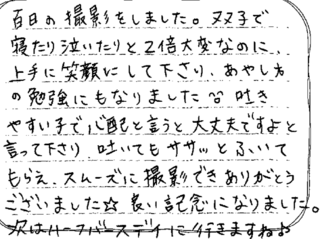 百日の撮影をしました。双子で
寝たり泣いたりと2倍大変なのに、
上手に笑顔にして下さり、あやし方
の勉強にもなりました♡♡ 吐き
やすい子で心配と言うと大丈夫ですよと
言って下さり、吐いてもササッとふいて
もらえ、スムーズに撮影できありがとう
ございました☆ 良い記念になりました。
次はハーフバースデイに行きますね♪